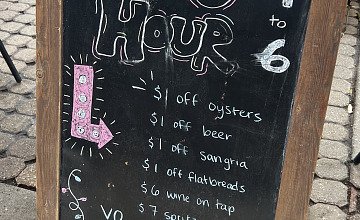 to
HOUR 6
$1 off oysters
$1 off beer
$1 off sangria
$1 off flatbreads
$6 wine on tap
$7